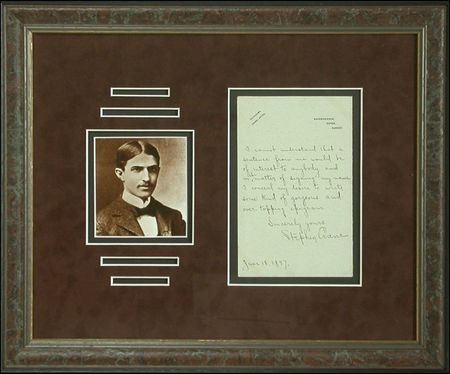 RAVENSBROOK,
OXTED,
SURREY.
I cannot understand that a
sentence from me would be
of interest to anybody and
in matter of signing my name
I conceal my desire to write
some kind of gorgeous and
over-topping epigram.
Sincerely yours
Stephen Crane
June 18, 1897.